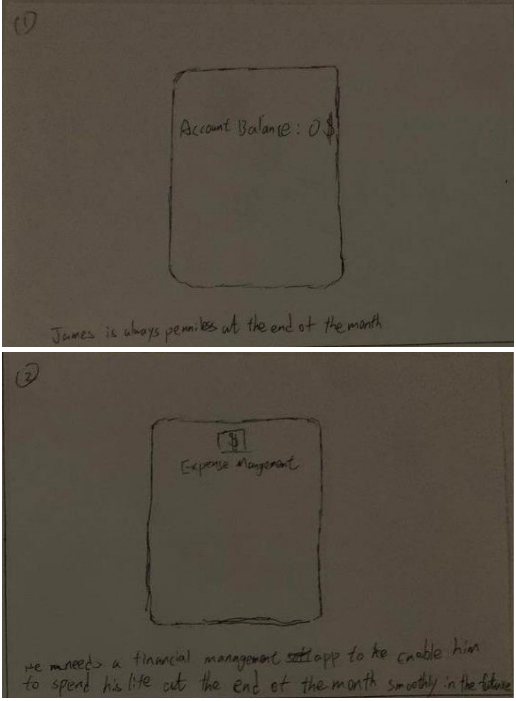 ①
Account Balance: 0$
James is always penniless at the end of the month
②
$
Expense Mangement
He needs a financial management app to enable him
to spend his life at the end of the month smoothly in the future